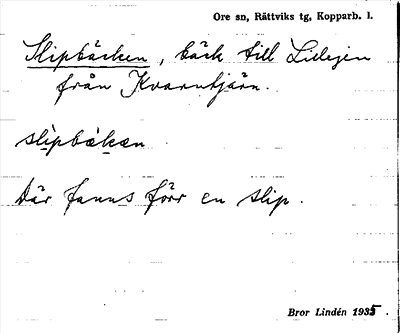 Ore sn, Rättviks tg, Kopparb. l.
Slipbäcken, bäck till Lillsjön
från Kvarntjärn.
slìpbækæn
Där fanns förr en slip.
Bror Lindén 1935.